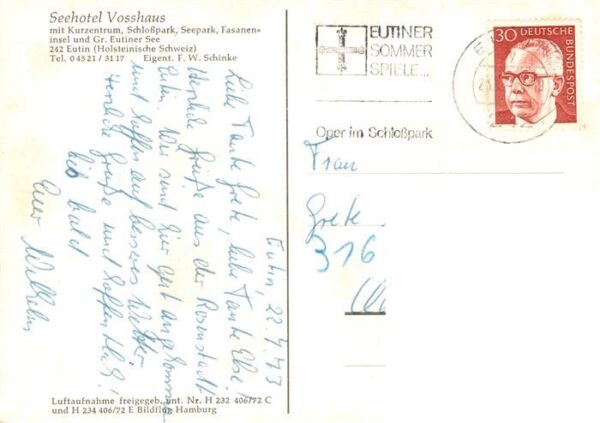 Seehotel Vosshaus
mit Kurzentrum, Schloßpark, Seepark, Fasanen-
insel und Gr. Eutiner See
242 Eutin (Holsteinische Schweiz)
Tel. 04521 / 3117 Eigent. F. W. Schinke
Eutin, 22.4.73
Liebe Tante Grete, liebe Tante Else!
Herzliche Grüße aus der Rosenstadt
Eutin. Wir sind hier gut angekommen
und hoffen auf besseres Wetter.
Herzliche Grüße und hoffentlich
bis bald!
Euer Wilhelm
Luftaufnahme freigegeb. unt. Nr. H 232 406/72 C
und H 234 406/72 E Bildflug Hamburg
EUTINER
SOMMER
SPIELE...
Oper im Schloßpark
30 DEUTSCHE
BUNDESPOST
Frau
Grete
316